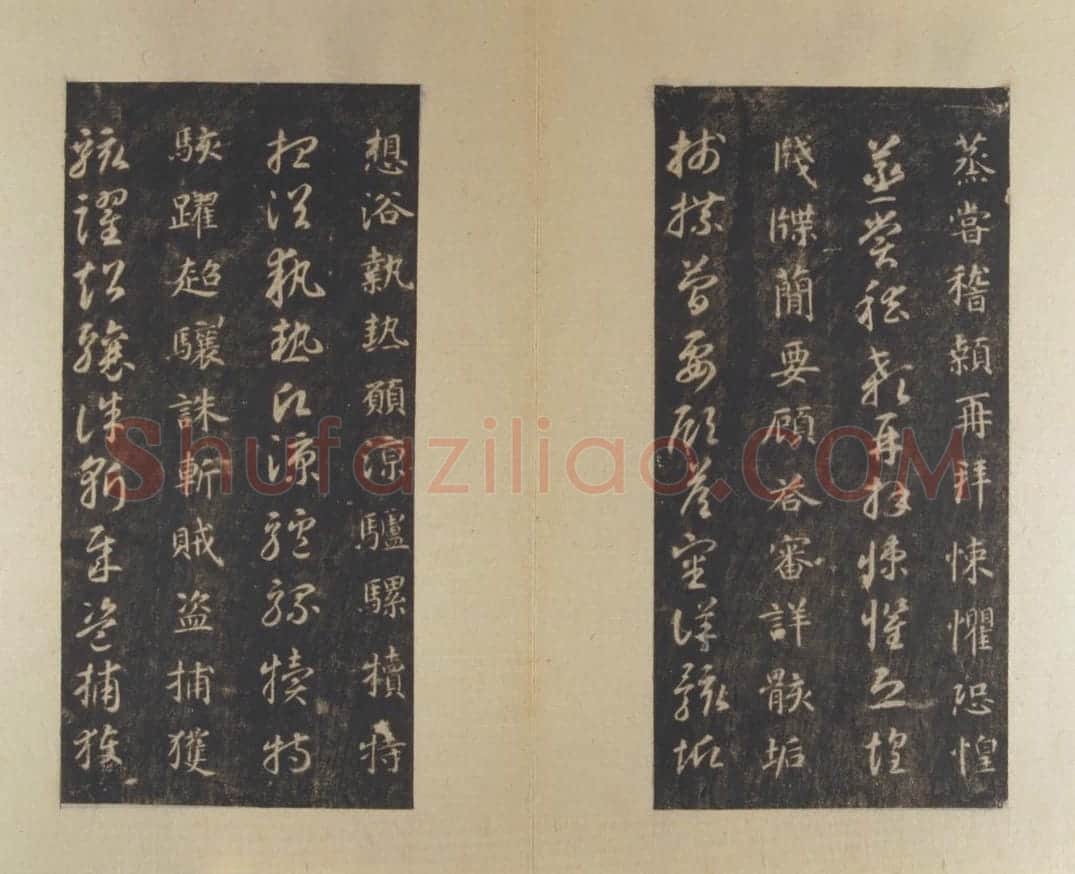 蒸嘗稽顙再拜悚懼恐惶
蒸嘗稽顙再拜悚懼恐惶
牋牒簡要顧答審詳骸垢
牋牒簡要顧答審詳骸垢
想浴執熱願涼驢騾犢特
想浴執熱願涼驢騾犢特
駭躍超驤誅斬賊盜捕獲
駭躍超驤誅斬賊盜捕獲
Shufaziliao.COM